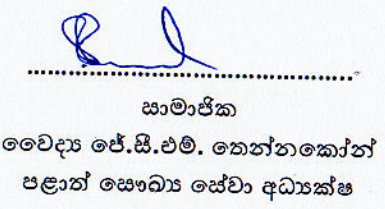 සාමාජික
වෛද්‍ය ජේ.සී.එම්. තෙන්නකෝන්
පළාත් සෞඛ්‍ය සේවා අධ්‍යක්ෂ